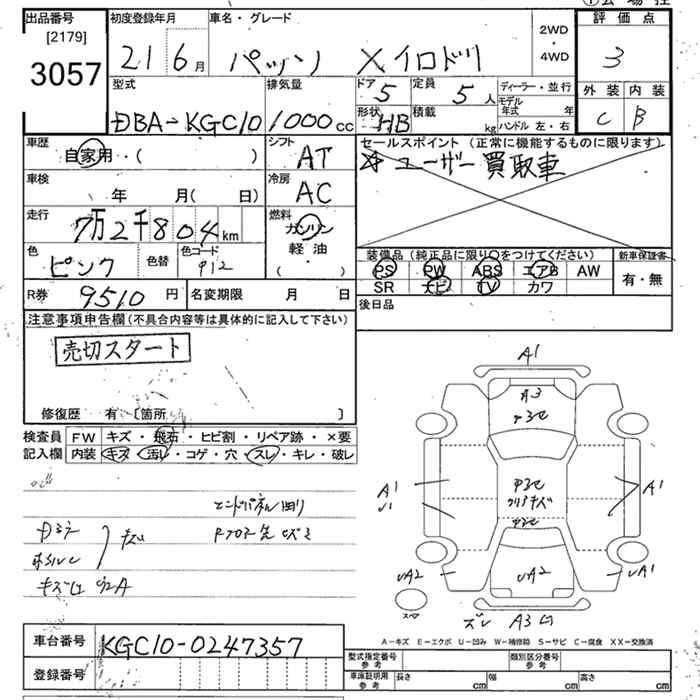 出品番号
[2179]
3057
初度登録年月
21 6月
車名・グレード
パッソ Xイロドリ
2WD
・
4WD
評価点
3
外装 内装
C B
型式
DBA-KGC10
排気量
1000cc
ドア 5
形状 HB
定員 5人
積載 kg
ディーラー・並行
モデル年式 年
ハンドル 左・右
車歴
自家用・( )
車検
年 月( 日)
走行
7万2千804km
色
ピンク
色替
色コード
シフト
AT
冷房
AC
燃料
ガソリン
軽油
( ・ )
セールスポイント(正常に機能するものに限ります)
☆ユーザー買取車
装備品(純正品に限り○をつけてください)
PS PW ABS エアB AW
SR ナビ TV カワ
新車保証書
有・無
後日品
R券 9510円
名変期限 月 日
注意事項申告欄(不具合内容等は具体的に記入して下さい)
売切スタート
修復歴 有 [箇所 ]
検査員
記入欄
FW キズ・飛石・ヒビ割・リペア跡・×要
内装 キズ・汚レ・コゲ・穴・スレ・キレ・破レ
エンドパネル凹
キズ
A1
A3
A1
A1
UA2
UA2
UA1
スペア
ズレ A3
A-キズ E-エクボ U-凹み W-補修跡 S-サビ C-腐食 XX-交換済
車台番号
KGC10-0247357
登録番号
型式指定番号
参考
類別区分番号
参考
車庫証明用
参考
長さ cm
幅 cm
高さ cm